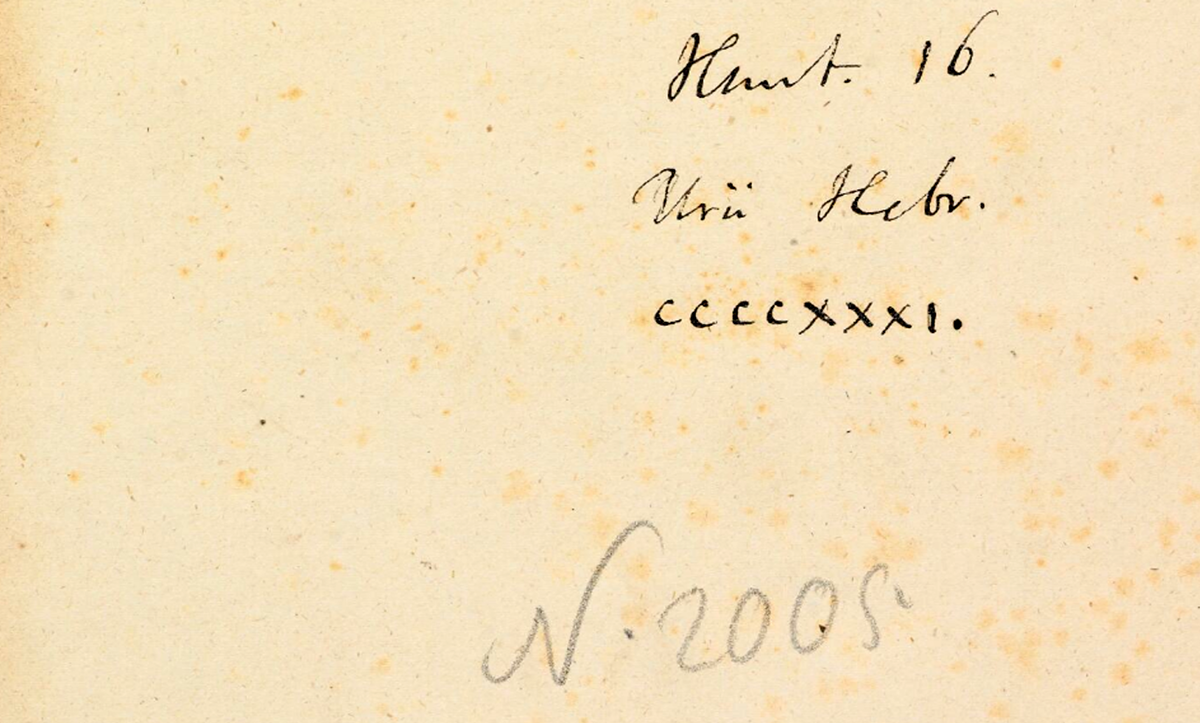 Hunt. 16.
Urii Hebr.
CCCCXXXI.
N. 2005